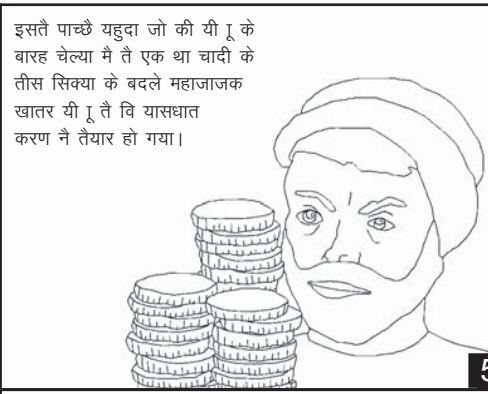 इसतै पाच्छै यहुदा जो की यी ु के
बारह चेल्या मै तै एक था चादी के
तीस सिक्या के बदले महाजाजक
खातर यी ु तै वि यासधात
करण नै तैयार हो गया।
5